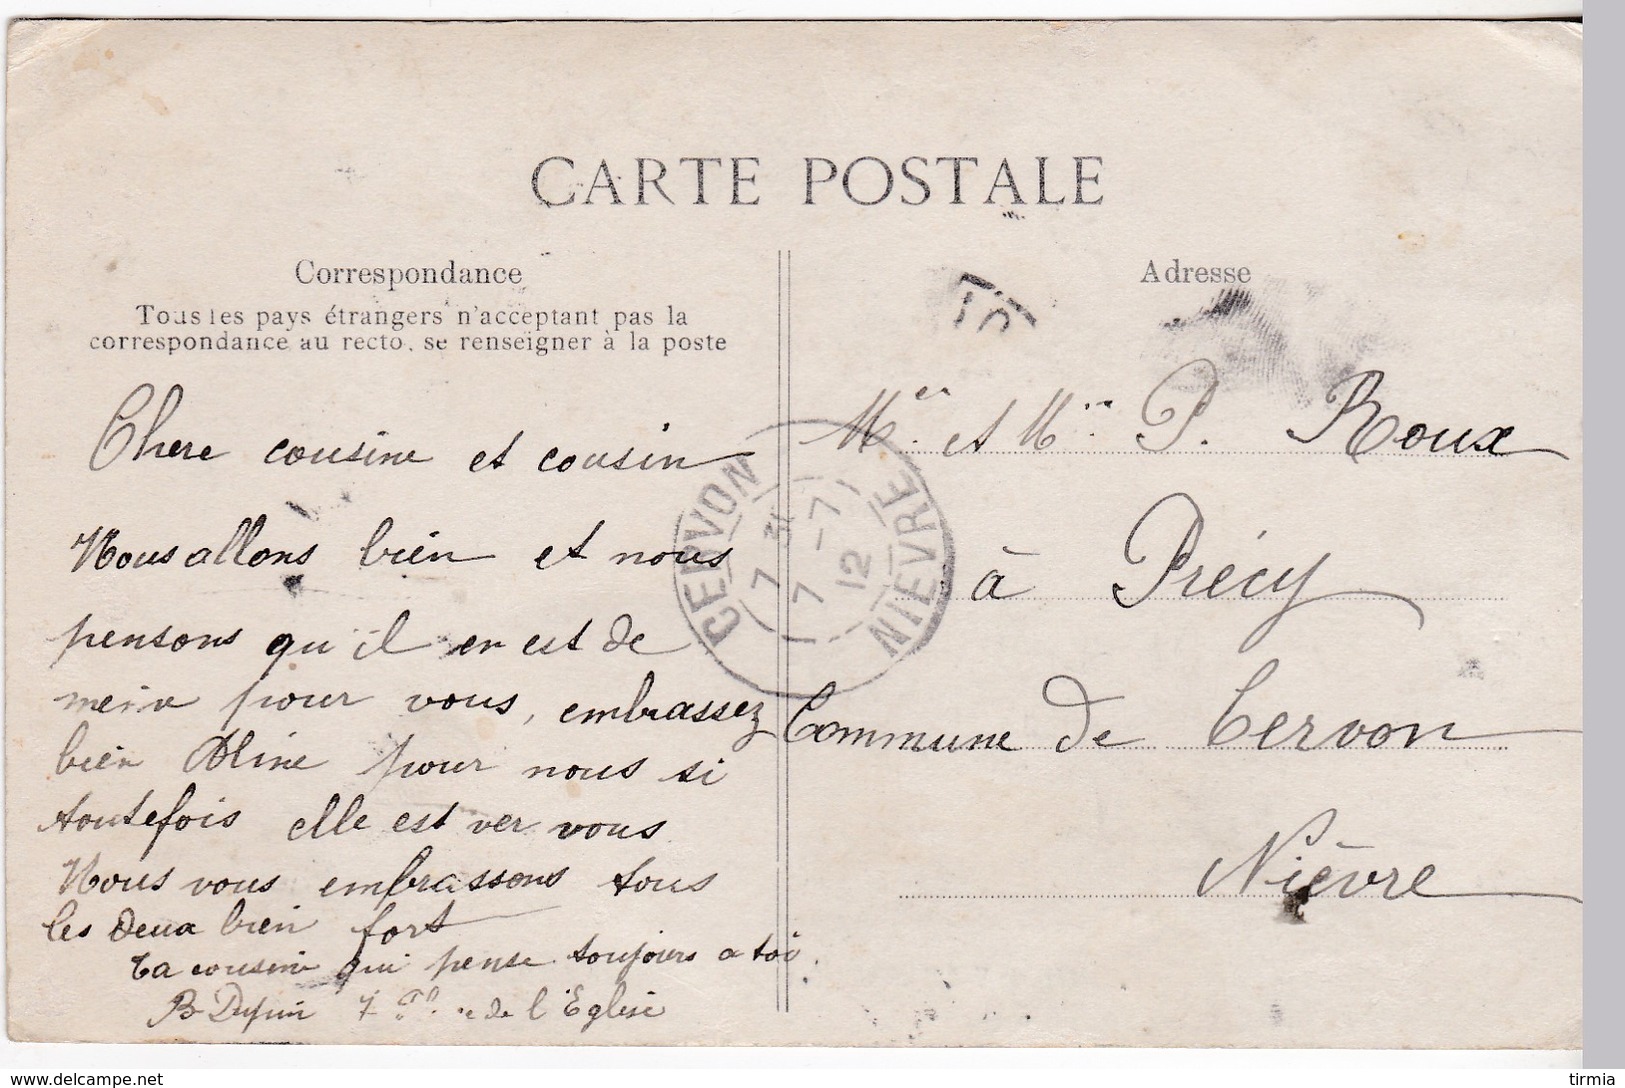 CARTE POSTALE
Correspondance
Tous les pays étrangers n'acceptant pas la
correspondance au recto, se renseigner à la poste
Chere cousine et cousin
Nous allons bien et nous
pensons qu'il en est de
meme pour vous, embrassez
bien Aline pour nous si
toutefois elle est ver vous
Nous vous embrassons tous
les deux bien fort
ta cousine qui pense toujours a toi.
B Dupin 7 Pl de l'Eglise
Adresse
Mr. et Mme P. Roux
à Précy
Commune de Cervon
Nièvre
CERVON
7
7 -7
12
NIEVRE
www.delcampe.net
tirmia